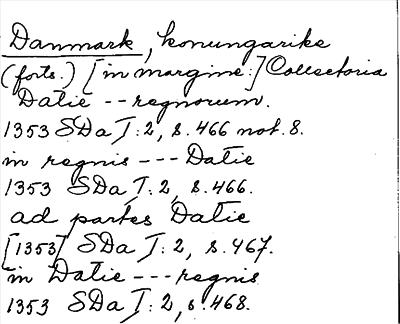 Danmark, konungarike
(forts.) [in margine:] Collectoria
Datie -- regnorum.
1353 SDa I: 2, s. 466 not. 8.
in regnis --- Datie
1353 SDa I: 2, s. 466.
ad partes Datie
[1353] SDa I: 2, s. 467.
in Datie --- regnis
1353 SDa I: 2, s. 468.